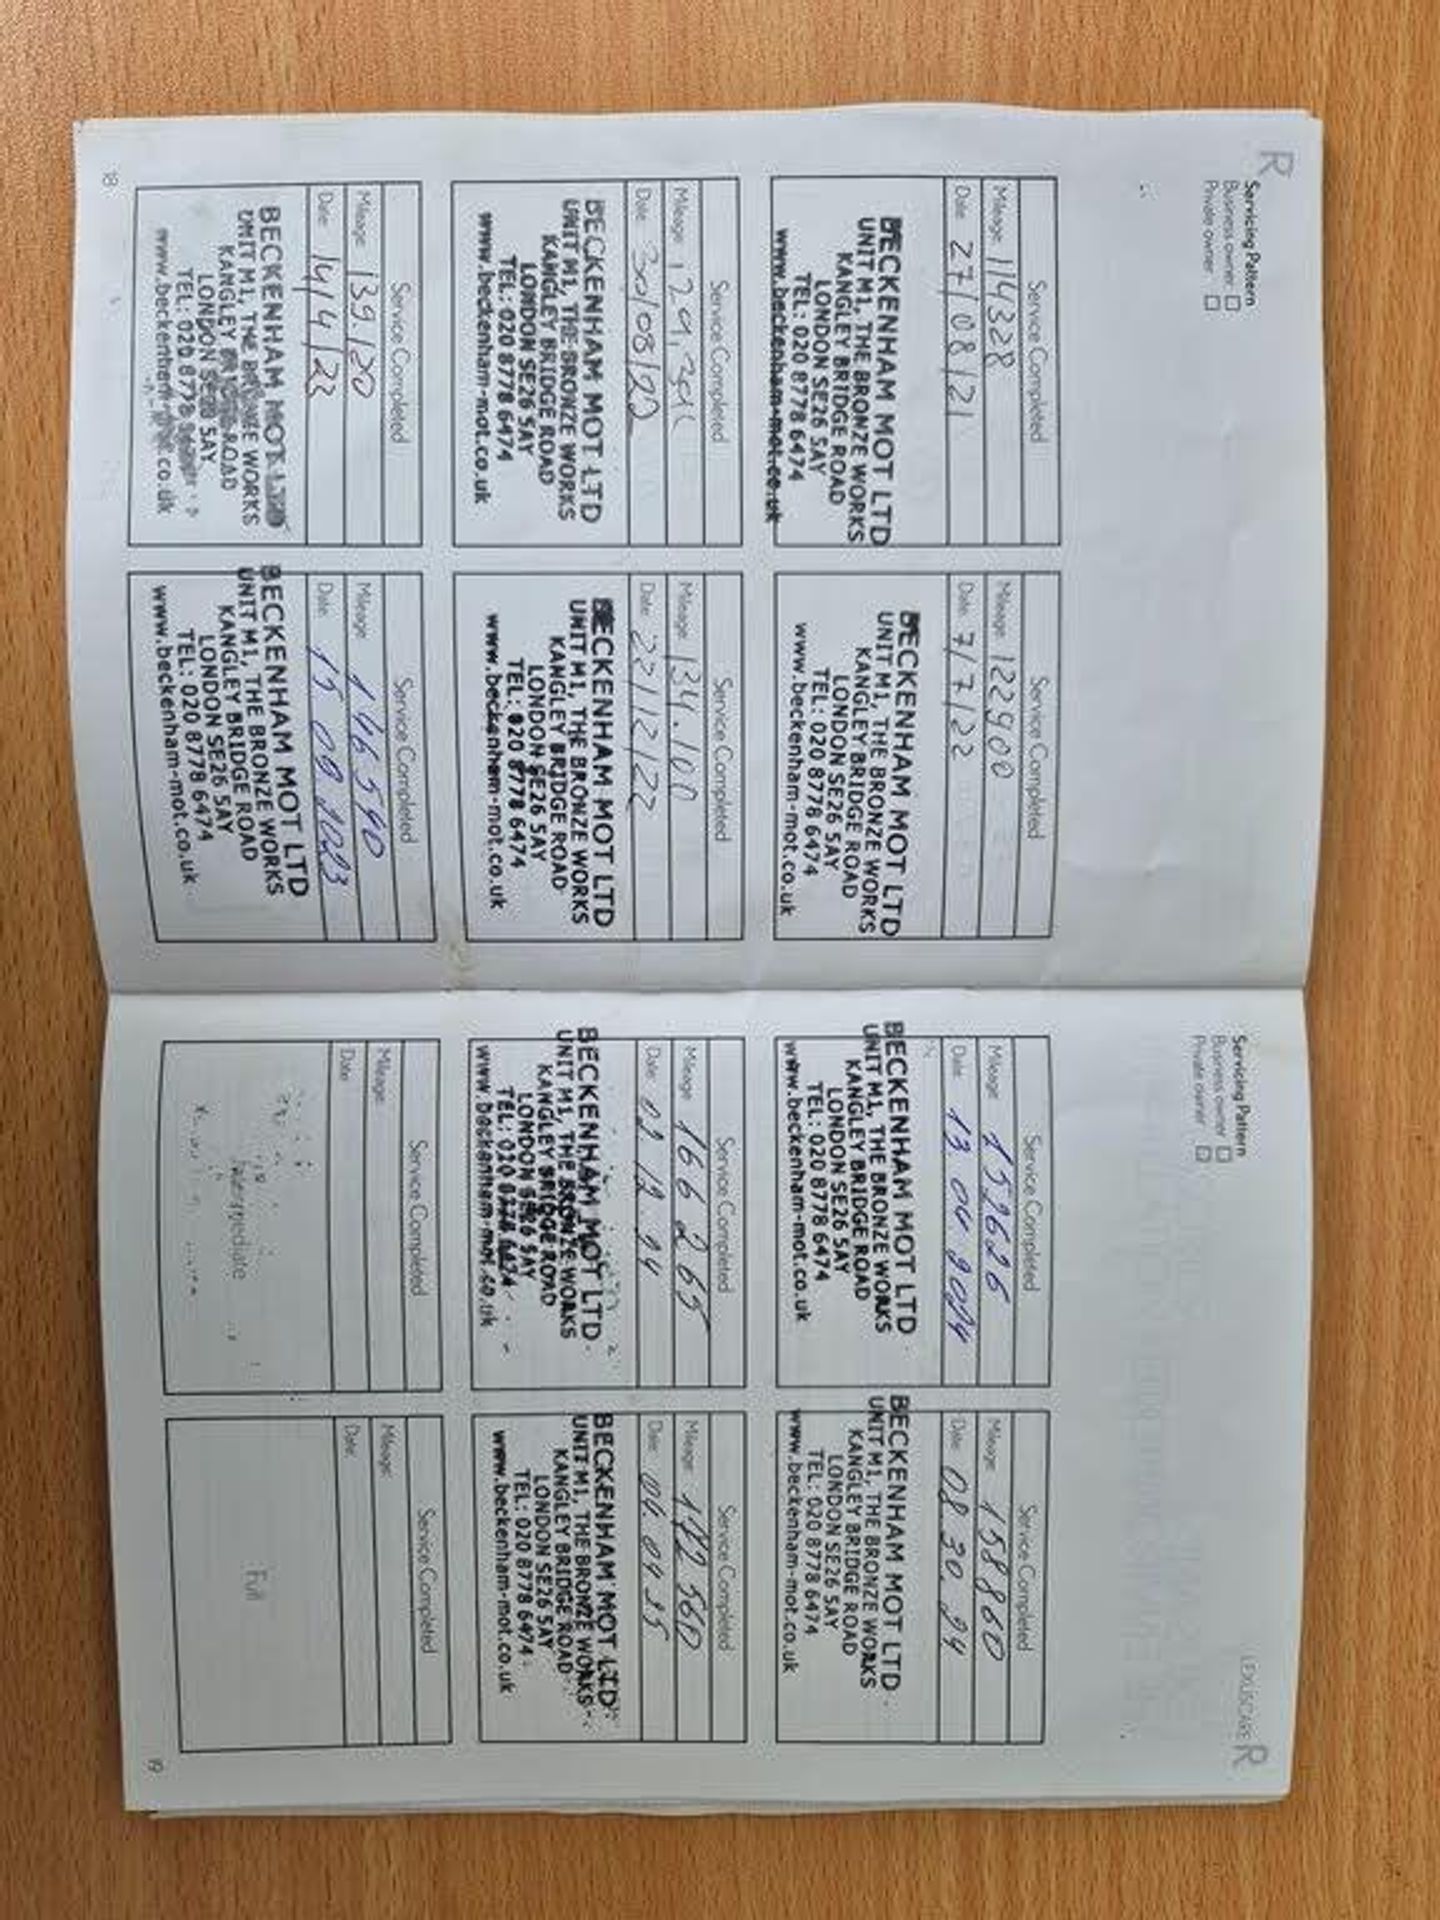 R
Servicing Pattern
Business owner
Private owner
Service Completed
Mileage: 114328
Date: 27/08/21
BECKENHAM MOT LTD
UNIT M1, THE BRONZE WORKS
KANGLEY BRIDGE ROAD
LONDON SE26 5AY
TEL: 020 8778 6474
www.beckenham-mot.co.uk
Service Completed
Mileage: 122900
Date: 7/7/22
BECKENHAM MOT LTD
UNIT M1, THE BRONZE WORKS
KANGLEY BRIDGE ROAD
LONDON SE26 5AY
TEL: 020 8778 6474
www.beckenham-mot.co.uk
Service Completed
Mileage:
Date: 30/08/22
BECKENHAM MOT LTD
UNIT M1, THE BRONZE WORKS
KANGLEY BRIDGE ROAD
LONDON SE26 5AY
TEL: 020 8778 6474
www.beckenham-mot.co.uk
Service Completed
Mileage: 134.100
Date: 22/12/22
BECKENHAM MOT LTD
UNIT M1, THE BRONZE WORKS
KANGLEY BRIDGE ROAD
LONDON SE26 5AY
TEL: 020 8778 6474
www.beckenham-mot.co.uk
Service Completed
Mileage: 139.120
Date: 14/4/23
BECKENHAM MOT LTD
UNIT M1, THE BRONZE WORKS
KANGLEY BRIDGE ROAD
LONDON SE26 5AY
TEL: 020 8778
www.beckenham-mot.co.uk
Service Completed
Mileage: 146540
Date: 15 09 2023
BECKENHAM MOT LTD
UNIT M1, THE BRONZE WORKS
KANGLEY BRIDGE ROAD
LONDON SE26 5AY
TEL: 020 8778 6474
www.beckenham-mot.co.uk
18
LEXUSCARE R
Servicing Pattern
Business owner
Private owner
Service Completed
Mileage: 152626
Date: 13 04 2024
BECKENHAM MOT LTD
UNIT M1, THE BRONZE WORKS
KANGLEY BRIDGE ROAD
LONDON SE26 5AY
TEL: 020 8778 6474
www.beckenham-mot.co.uk
Service Completed
Mileage: 158860
Date: 08.30.24
BECKENHAM MOT LTD
UNIT M1, THE BRONZE WORKS
KANGLEY BRIDGE ROAD
LONDON SE26 5AY
TEL: 020 8778 6474
www.beckenham-mot.co.uk
Service Completed
Mileage: 166265
Date: 12 24
BECKENHAM MOT LTD
UNIT M1, THE BRONZE WORKS
KANGLEY BRIDGE ROAD
LONDON SE26 5AY
TEL: 020 8778 6474
www.beckenham-mot.co.uk
Service Completed
Mileage: 172560
Date: 04.04 25
BECKENHAM MOT LTD
UNIT M1, THE BRONZE WORKS
KANGLEY BRIDGE ROAD
LONDON SE26 5AY
TEL: 020 8778 6474
www.beckenham-mot.co.uk
Service Completed
Mileage:
Date:
Intermediate
Service Completed
Mileage:
Date:
Full
19